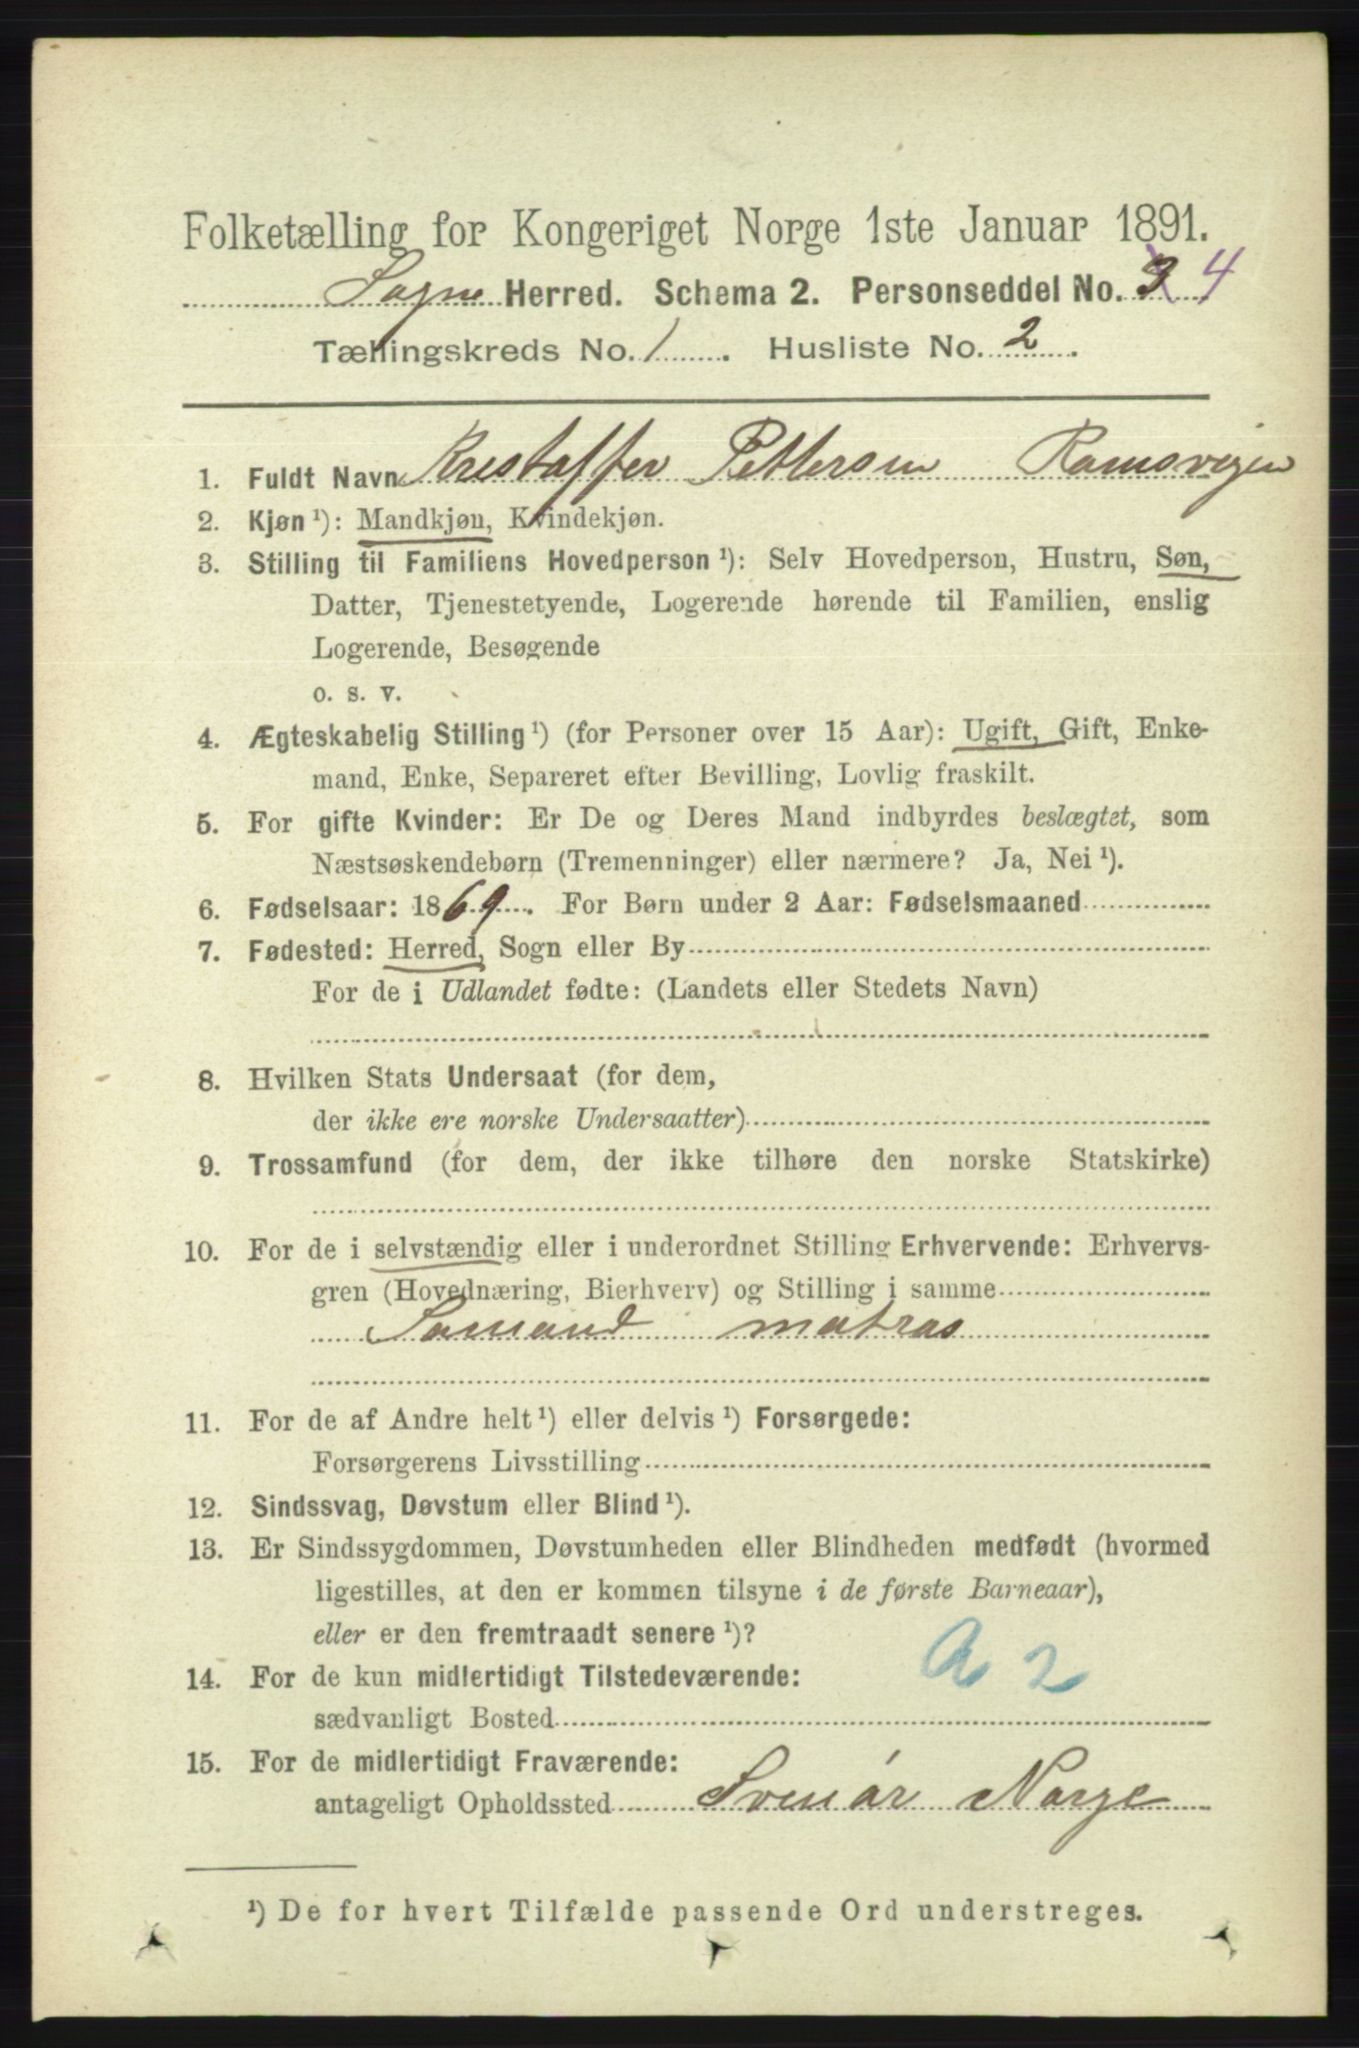 Folketælling for Kongeriget Norge 1ste Januar 1891.
Sogne Herred. Schema 2. Personseddel No. 3 4
Tællingskreds No. 1. Husliste No. 2.
1. Fuldt Navn Krestoffer Pettersen Ramsvigen
2. Kjøn ¹): Mandkjøn, Kvindekjøn.
3. Stilling til Familiens Hovedperson ¹): Selv Hovedperson, Hustru, Søn,
Datter, Tjenestetyende, Logerende hørende til Familien, enslig
Logerende, Besøgende
o. s. v.
4. Ægteskabelig Stilling ¹) (for Personer over 15 Aar): Ugift, Gift, Enke-
mand, Enke, Separeret efter Bevilling, Lovlig fraskilt.
5. For gifte Kvinder: Er De og Deres Mand indbyrdes beslægtet, som
Næstsøskendebørn (Tremenninger) eller nærmere? Ja, Nei ¹).
6. Fødselsaar: 1869. For Børn under 2 Aar: Fødselsmaaned
7. Fødested: Herred, Sogn eller By
For de i Udlandet fødte: (Landets eller Stedets Navn)
8. Hvilken Stats Undersaat (for dem,
der ikke ere norske Undersaatter)
9. Trossamfund (for dem, der ikke tilhøre den norske Statskirke)
10. For de i selvstændig eller i underordnet Stilling Erhvervende: Erhvervs-
gren (Hovednæring, Bierhverv) og Stilling i samme
Somand matros
11. For de af Andre helt ¹) eller delvis ¹) Forsørgede:
Forsørgerens Livsstilling
12. Sindssvag, Døvstum eller Blind ¹).
13. Er Sindssygdommen, Døvstumheden eller Blindheden medfødt (hvormed
ligestilles, at den er kommen tilsyne i de første Barneaar),
eller er den fremtraadt senere ¹)?
a 2
14. For de kun midlertidigt Tilstedeværende:
sædvanligt Bosted
15. For de midlertidigt Fraværende:
antageligt Opholdssted Svenör Norge
¹) De for hvert Tilfælde passende Ord understreges.